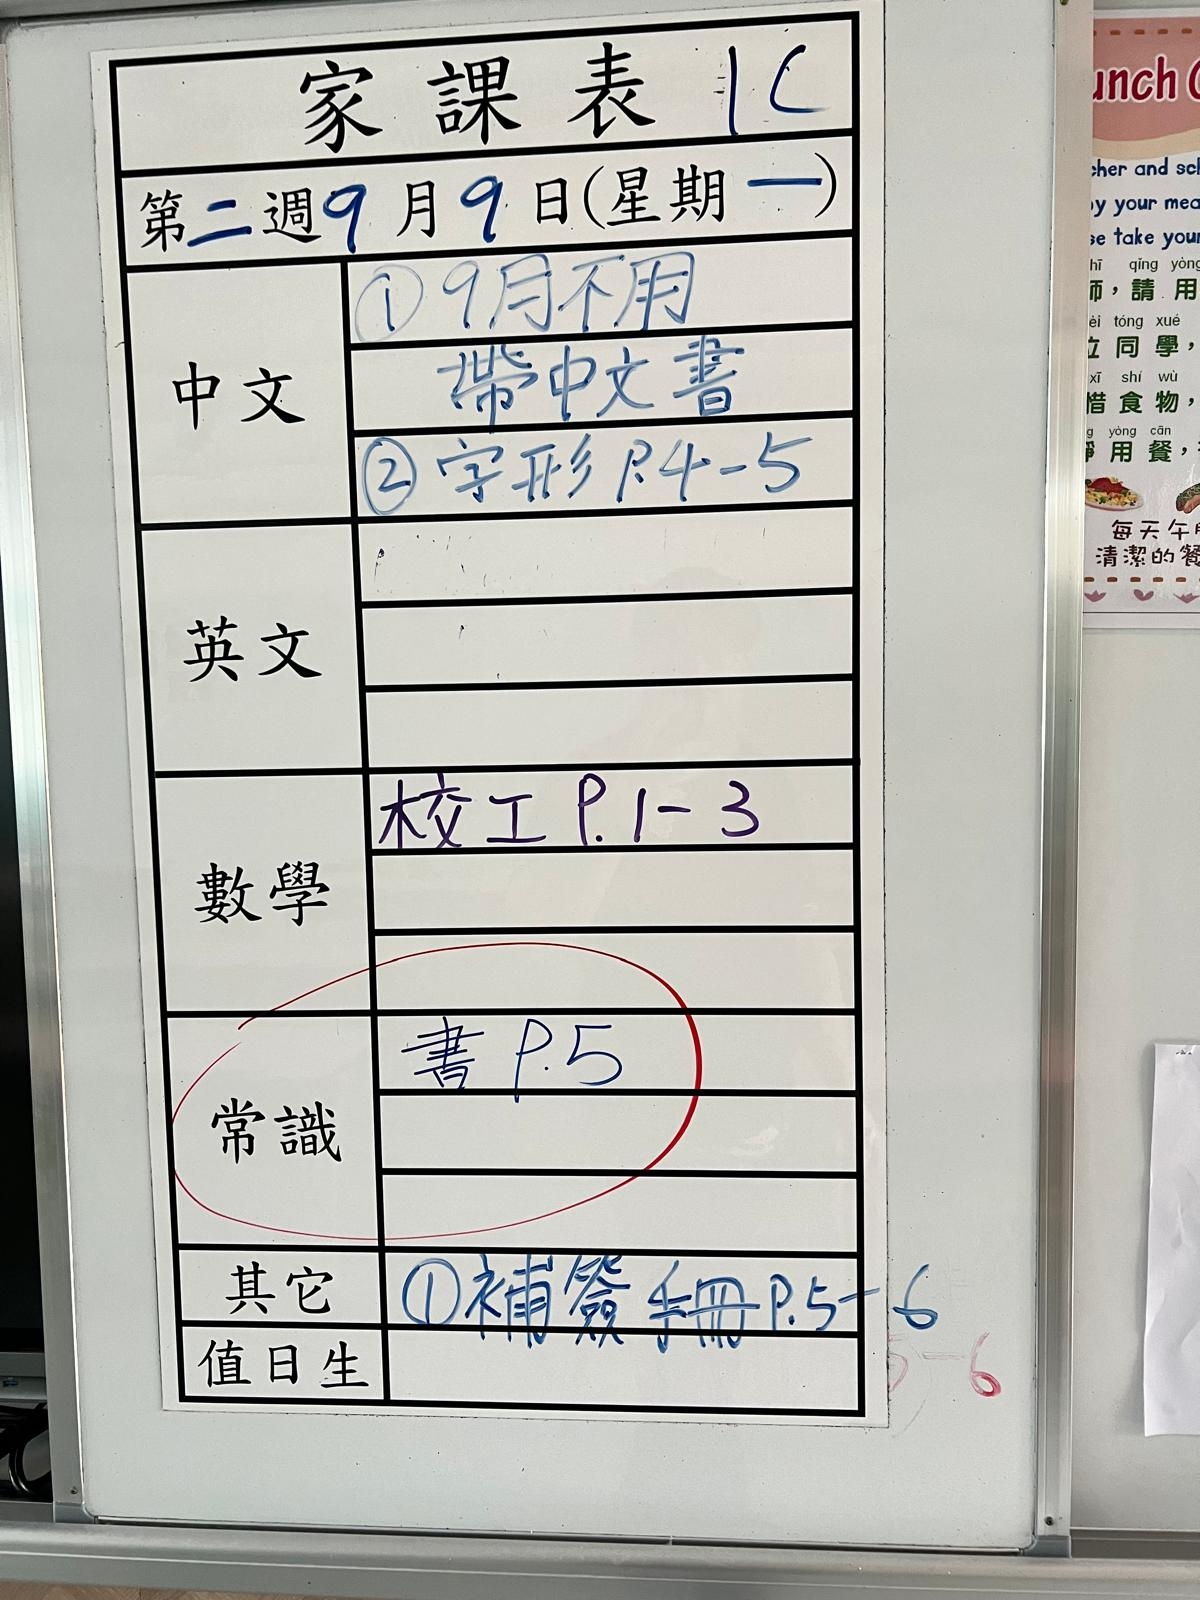 家課表 1C
第二週9月9日(星期一)
中文
①9月不用
帶中文書
②字形P.4-5
英文
數學
校工P.1-3
常識
書P.5
其它
①補簽手冊P.5-6
5-6
值日生
unch
cher and sch
y your mea
se take your
qǐng yòng
師，請用
tóng xué
同學，
xī shí wù
惜食物，
yòng cān
用餐，
每天午
清潔的餐